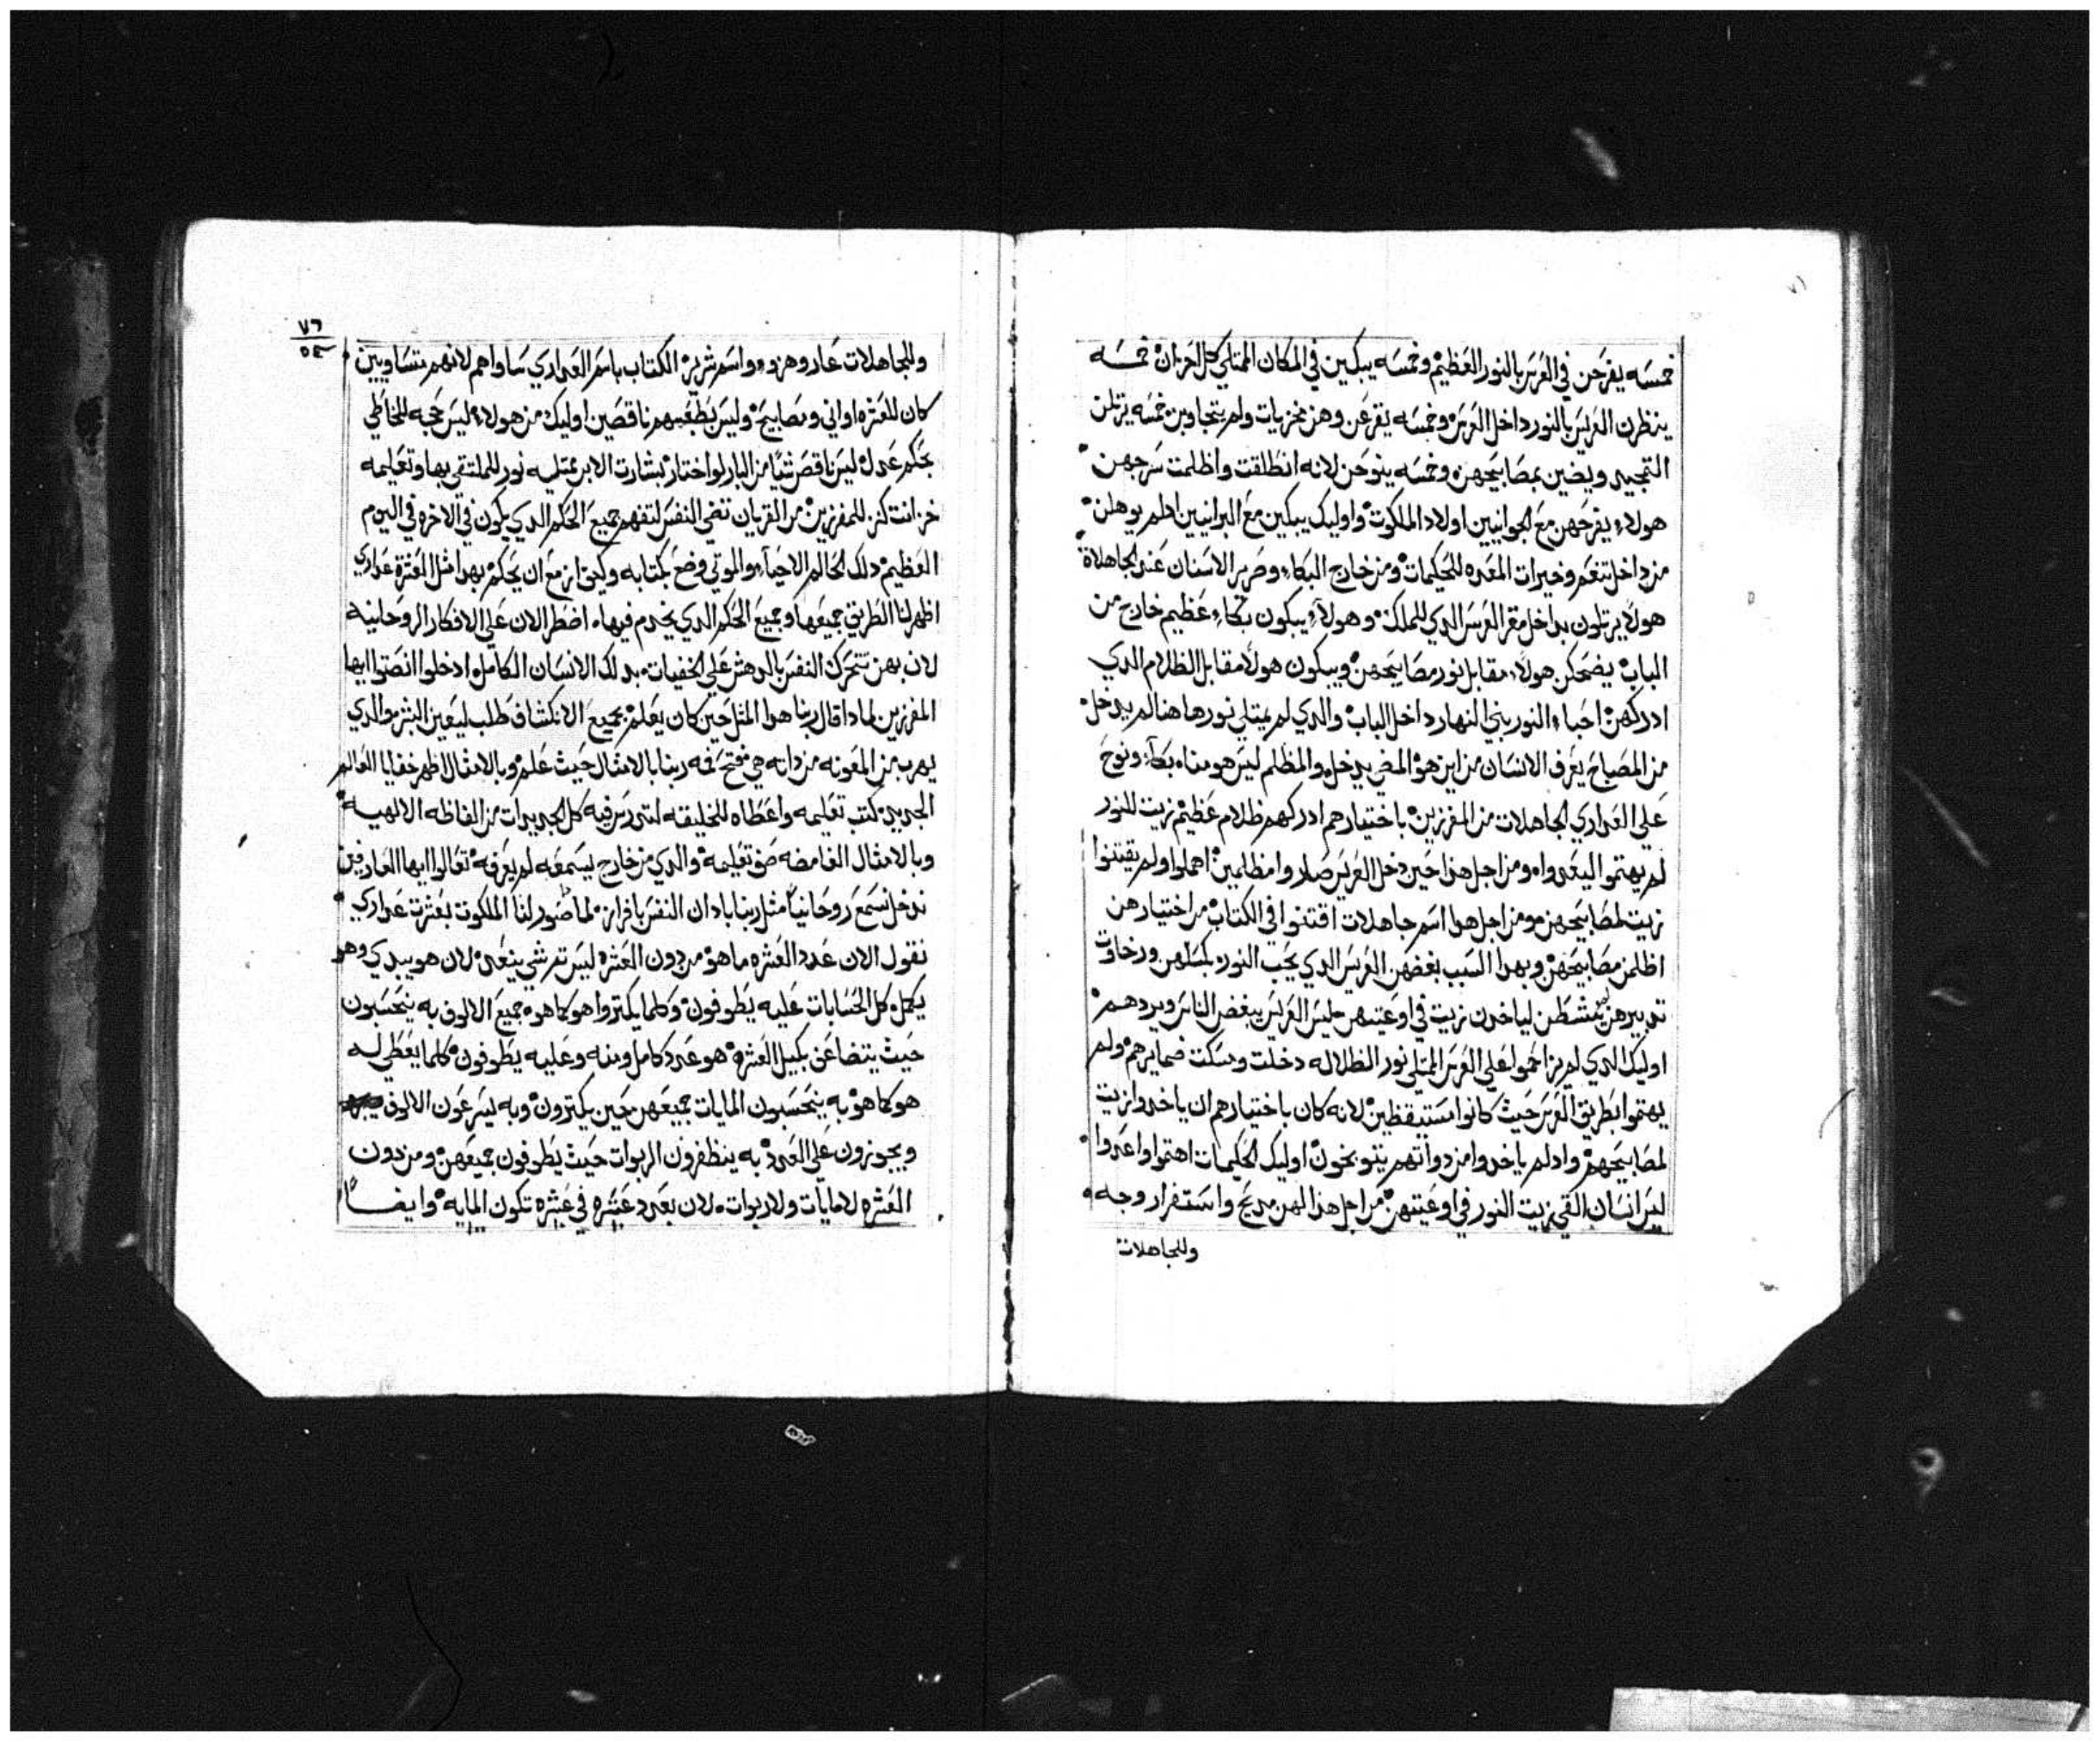 خمسه يفرحن في العرس بالنور العظيم وخمسه يبكين في المكان الممتلي كل احزان خمسه
ينظرن العريس بالنور داخل العرس وخمسه يقرعن وهن مخزيات ولم يتجاوبن خمسه يرتلن
التمجيد ويضين بمصابيحهن وخمسه ينوحن لانه انطلقت واظلمت سرجهن
هولاء يفرحهن مع الجوانيين اولاد الملكوت واوليك يبكين مع البرانيين ادلم يوهلن
من داخل تنعم وخيرات المعده للحكيمات ومن خارج البكاء وصرير الاسنان عند الجاهلاة
هولاء يرتلون بداخل مقر العرس الدي للملك وهولاء يبكون بكاء عظيم خارج من
الباب يضحكن هولاء مقابل نور مصابيحهن ويبكون هولاء مقابل الظلام الدي
ادركهن احباء النور بني النهار داخل الباب والدي لم يمتلي نورها هنا لم يدخل
من المصباح يعرف الانسان من اين هو المضي يدخل والمظلم ليس هو مناه بكاء ونوح
علي العداري الجاهلات من المفرزين باختيارهم ادركهم ظلام عظيم زيت للنور
لم يهتموا ليعدواه ومن اجل هذا حين دخل العريس صاروا مظلمين اهملوا ولم يقتنوا
زيت لمصابيحهن ومن اجل هدا اسم جاهلات اقتنوا في الكتاب من اختيارهن
اظلمن مصابيحهن وبهدا السبب بغضهن العريس الدي يحب النور بكسلهن ورخاوت
تدبيرهن لم ينشطن لياخدن زيت في اوعيتهن ليس العريس يبغض الناس ويردهم
اوليك الدي لم يزاحموا علي العرس الممتلي نور الظلاله دخلت وسكت ضمايرهم ولم
يهتموا بطريق العرس حيث كانوا مستيقظين لانه كان باختيارهم ان ياخدوا زيت
لمصابيحهم وادلم ياخدوا من دواتهم يتوبخون اوليك الحكيمات اهتموا واعدوا
ليس انسان القي زيت النور في اوعيتهن من اجل هذا لهن مديح واستفرار وجه
وللجاهلات
٧٦
وللجاهلات عار وهزو واسم شرير الكتاب باسم العداري ساواهم لانهم متساويين
كان للعشره اواني ومصابيح وليس بطبعهم ناقصين اوليك من هولاء ليس حجه للخاطي
بحكم عدل ليس ناقص شيا من البار لو اختار بشارت الابن يمتليه نور للملتقي بها وتعليمه
خزانت كنز للمفرزين من القريان تضي النفس لتفهم جميع الحكم الدي يكون في الاخره في اليوم
العظيم دلك الحاكم الاحياء والموتي وضع بكتابه وكيف ازمع ان يحكم بهدا مثل العشرة عداري
اظهر لنا الطريق جميعها وجميع الحكم الدي يخدم فيها اضطر الان علي الافكار الروحانيه
لان بهن تتحرك النفس بالدهش علي الخفيات بدلك الانسان الكامل ادخلوا انصتوا ايها
المفرزين لمادا قال ربنا هدا المثل حين كان يعلم بجميع الانكشاف طلب ليعين البشر والدي
يهرب من المعونه من داته هي فتح فمه ربنا بالامثال حيث علم وبالامثال اظهر خفايا العالم
الجديد كتب تعليمه واعطاه للخليقه لتدرس فيه كل الجديدات من الفاظه الالهيه
وبالامثال الغامضه ضو تعليمه والدي من خارج يسمعه لم يعرفه تعالوا ايها العارفين
ندخل نسمع روحانيا مثل ربنا بادان النفس بافراز لما صور لنا الملكوت بعشرت عداري
نقول الان عدد العشره ما هو من دون العشره ليس تم شي ينعد لان هو يبدي وهو
يكمل كل الحسابات عليه يطوفون وكلما يكتروا هو كما هو جميع الالوف به يتحسبون
حيث يتضاعف بكيل العشره هو عدد كامل ومنه وعليه يطوفون كلما يعطي له
هو كما هو به يتحسبون المايات جميعهن حين يكترون وبه يسرعون الالوف
ويجوزون علي العدد به ينظفرون الربوات حيث يطوفون جميعهن ومن دون
العشره لا مايات ولا ربوات لان بعدد عشره في عشره تكون المايه وايضا